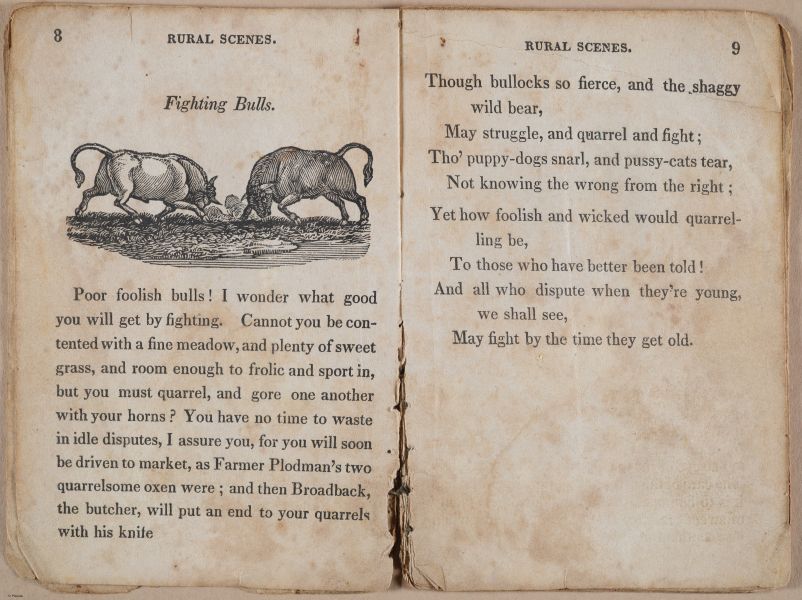 8
RURAL SCENES.
Fighting Bulls.
Poor foolish bulls! I wonder what good
you will get by fighting. Cannot you be con-
tented with a fine meadow, and plenty of sweet
grass, and room enough to frolic and sport in,
but you must quarrel, and gore one another
with your horns? You have no time to waste
in idle disputes, I assure you, for you will soon
be driven to market, as Farmer Plodman's two
quarrelsome oxen were; and then Broadback,
the butcher, will put an end to your quarrels
with his knife
RURAL SCENES.
9
Though bullocks so fierce, and the shaggy
wild bear,
May struggle, and quarrel and fight;
Tho' puppy-dogs snarl, and pussy-cats tear,
Not knowing the wrong from the right;
Yet how foolish and wicked would quarrel-
ling be,
To those who have better been told!
And all who dispute when they're young,
we shall see,
May fight by the time they get old.